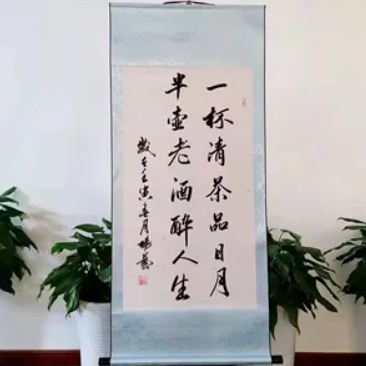 一杯清茶品日月
半壶老酒醉人生
壬寅
月